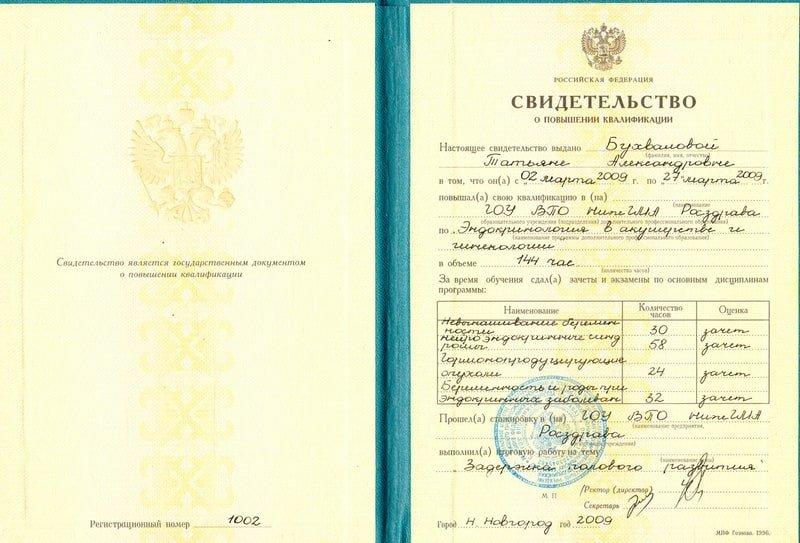 Свидетельство является государственным документом
о повышении квалификации
Регистрационный номер 1002
РОССИЙСКАЯ ФЕДЕРАЦИЯ
СВИДЕТЕЛЬСТВО
О ПОВЫШЕНИИ КВАЛИФИКАЦИИ
Настоящее свидетельство выдано Бухваловой
(фамилия, имя, отчество)
Татьяне Александровне
в том, что он(а) с „02" марта 2009 г. по „27" марта 2009 г.
повышал(а) свою квалификацию в (на)
(наименование
ГОУ ВПО НижГМА Росздрава
образовательного учреждения (подразделения) дополнительного профессионального образования)
по „Эндокринология в акушерстве и
(наименование программы дополнительного профессионального образования)
гинекологии"
в объеме 144 час
(количество часов)
За время обучения сдал(а) зачеты и экзамены по основным дисциплинам
программы:
Наименование Количество часов Оценка
Невынашивание беремен-
ности 30 зачет
нейроэндокринные синд
ромы 58 зачет
Гормонопродуцирующие
опухоли 24 зачет
Беременность и роды при
эндокринных заболеван 32 зачет
Прошел(а) стажировку в (на) ГОУ ВПО НижГМА
(наименование предприятия,
Росздрава
выполнил(а) итоговую работу на тему
„Задержка полового развития"
М. П. Ректор (директор)
Секретарь
Город Н. Новгород год 2009
МПФ Гознака. 1996.